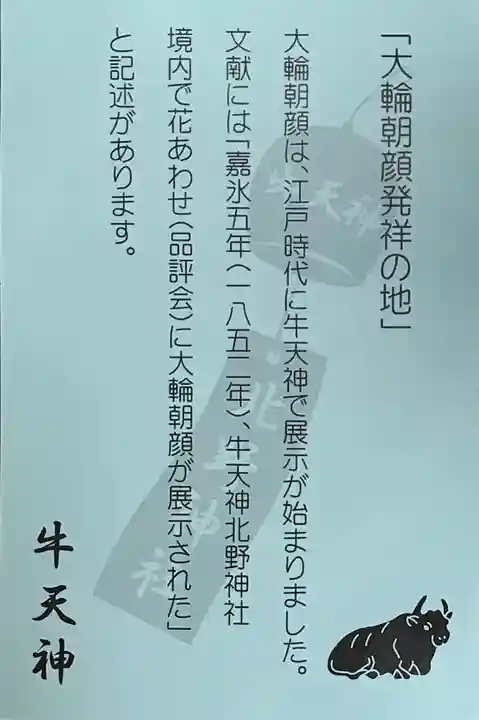 「大輪朝顔発祥の地」
大輪朝顔は、江戸時代に牛天神で展示が始まりました。
文献には「嘉永五年(一八五二年)、牛天神北野神社
境内で花あわせ(品評会)に大輪朝顔が展示された」
と記述があります。
牛天神
牛天神
北野神社